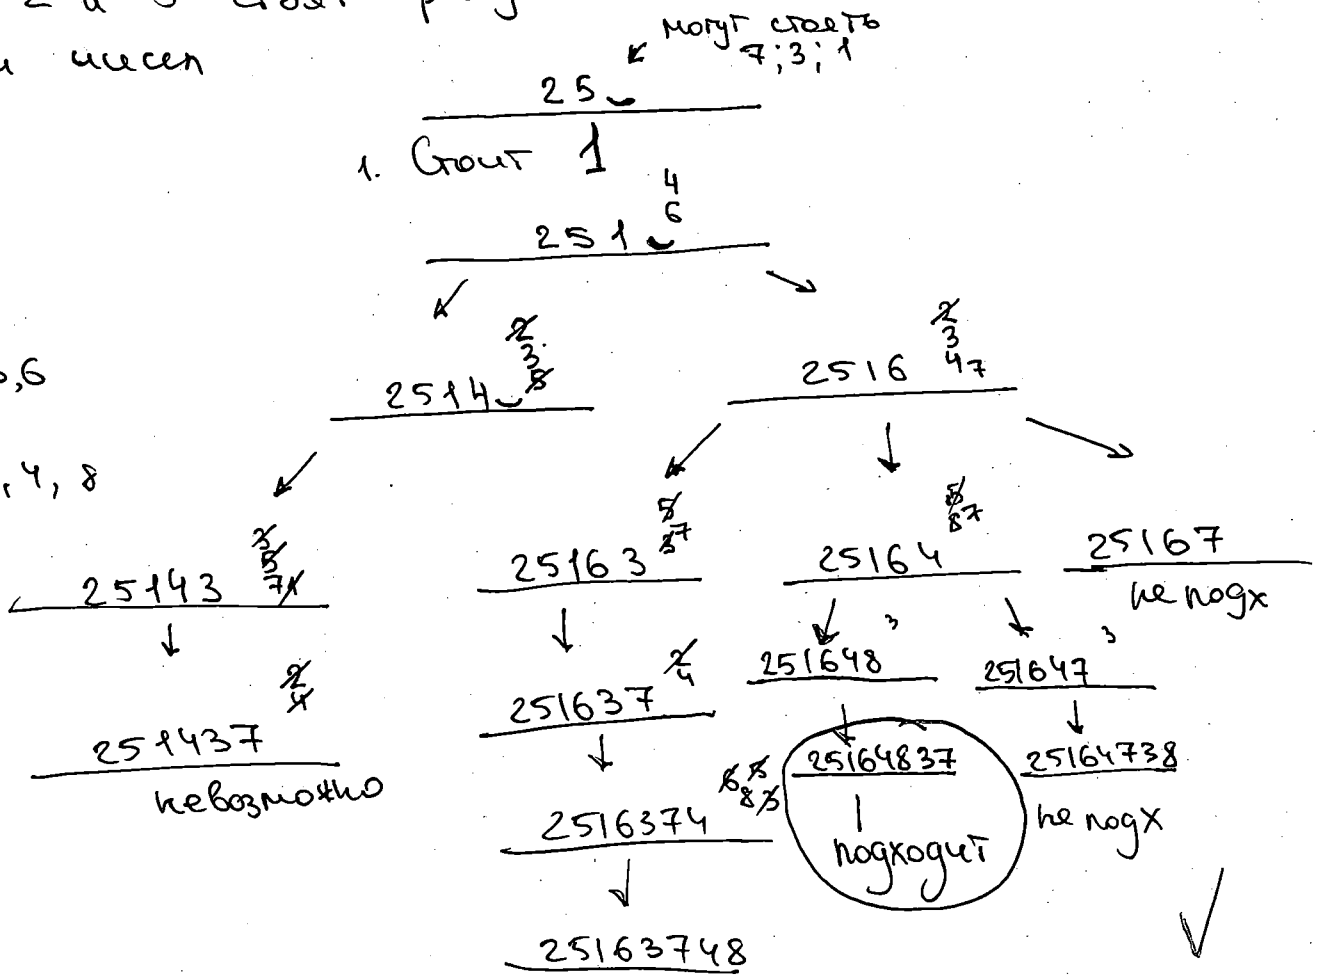 2 и 5 стоят
чисел
могут стоять
7; 3; 1
25
1. Стоит 1
4
6
251
2
3
5
2514
2
3
4 7
2516
,6
, 4, 8
3
5
7 1
25143
5
3 7
25163
5
8 7
25164
25167
не подх
2
4
251437
невозможно
2
4
251637
3
251648
3
251647
6 5
8 3
2516374
25164837
подходит
25164738
не подх
25163748